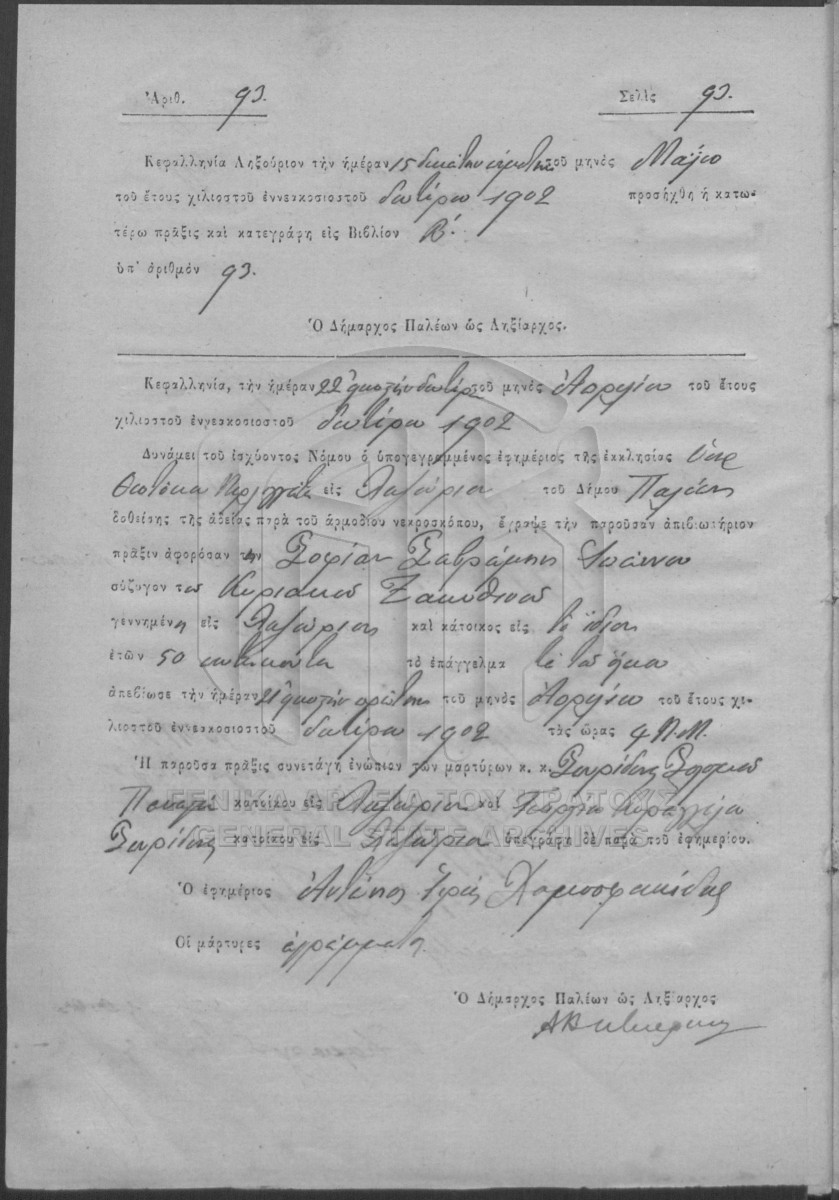 Ἀριθ. 93. Σελὶς 93.
Κεφαλληνία Ληξούριον τὴν ἡμέραν 15 δεκάτην πέμπτην τοῦ μηνὸς Μαΐου
τοῦ ἔτους χιλιοστοῦ ἐννεακοσιοστοῦ δευτέρου 1902 προσήχθη ἡ κατω-
τέρω πρᾶξις καὶ κατεγράφη εἰς Βιβλίον Β΄.
ὑπ' ἀριθμὸν 93.
Ὁ Δήμαρχος Παλέων ὡς Ληξίαρχος.
Κεφαλληνία, τὴν ἡμέραν 22 εἰκοστὴν δευτέραν τοῦ μηνὸς Ἀπριλίου τοῦ ἔτους
χιλιοστοῦ ἐννεακοσιοστοῦ δευτέρου 1902
Δυνάμει τοῦ ἰσχύοντος Νόμου ὁ ὑπογεγραμμένος ἐφημέριος τῆς ἐκκλησίας Ὑπερ
Θεοτόκου εἰς Ληξούριον τοῦ Δήμου Παλέων
δοθείσης τῆς ἀδείας παρὰ τοῦ ἁρμοδίου νεκροσκόπου, ἔγραψε τὴν παροῦσαν ἀπιβιωτήριον
πρᾶξιν ἀφορόσαν τὴν Σοφίαν Ἰωάννου
σύζυγον του Κυριακοῦ Ζακυθινοῦ
γεννημένη εἰς Ληξούριον καὶ κάτοικος εἰς τὸ ἴδιον
ἐτῶν 50 πεντήκοντα τὸ ἐπάγγελμα τὰ τοῦ οἴκου
ἀπεβίωσε τὴν ἡμέραν 21 εἰκοστὴν πρώτην τοῦ μηνὸς Ἀπριλίου τοῦ ἔτους χι-
λιοστοῦ ἐννεακοσιοστοῦ δευτέρου 1902 τὰς ὥρας 4 Π.Μ.
Ἡ παροῦσα πρᾶξις συνετάγη ἐνώπιον τῶν μαρτύρων κ. κ. Σπυρίδωνος
κατοίκου εἰς Ληξούριον καὶ
ΓΕΝΙΚΑ ΑΡΧΕΙΑ ΤΟΥ ΚΡΑΤΟΥΣ
GENERAL STATE ARCHIVES
Σπυρίδωνος κατοίκου εἰς Ληξούριον ὑπεγράφη δὲ παρὰ τοῦ ἐφημερίου.
Ὁ ἐφημέριος Ἀντώνιος Ἱερεὺς
Οἱ μάρτυρες ἀγράμματοι
Ὁ Δήμαρχος Παλέων ὡς Ληξίαρχος